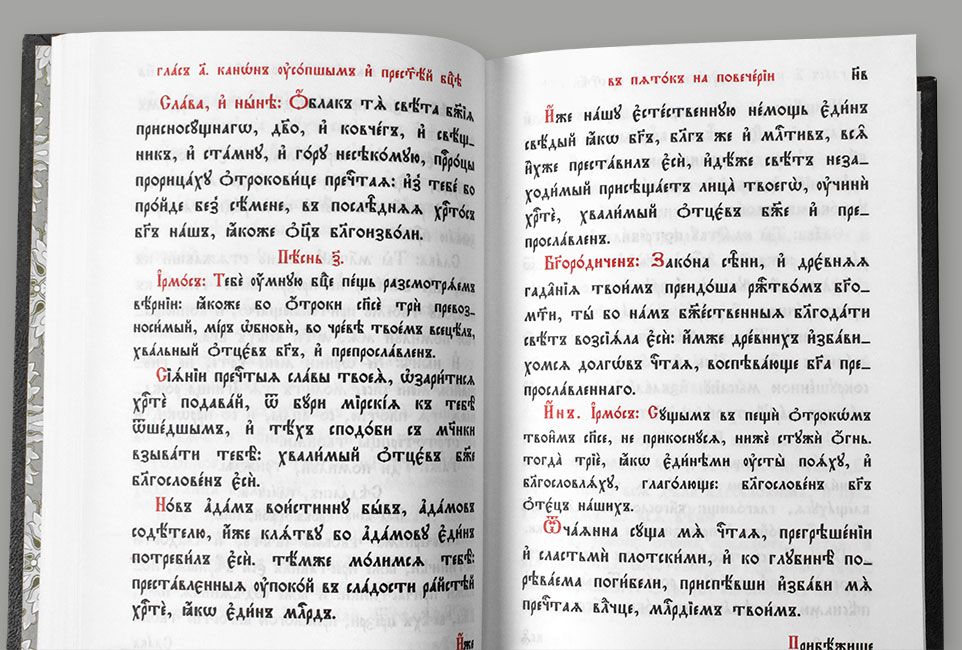 гла́съ а҃. канѡ́нъ ᲂу҆со́пшымъ и҆ прест҃ѣ́й бц҃ѣ
Сла́ва, и҆ ны́нѣ: Ѻ҆́блакъ тѧ̀ свѣ́та бж҃їѧ
присносꙋ́щнагѡ, дв҃о, и҆ ковче́гъ, и҆ свѣ́щ_
никъ, и҆ ста́мнꙋ, и҆ го́рꙋ несѣко́мꙋю, прⷪ҇ро́цы
прорица́хꙋ ѻ҆трокови́це пречⷭ҇таѧ: и҆з̾ тебє́ бо
про́йде без̾ сѣ́мене, въ послѣ́днѧѧ хрⷭ҇то́съ
бг҃ъ на́шъ, ꙗ҆́коже ѻ҆ц҃ъ бл҃гоизво́ли.
Пѣ́снь з҃.
І҆рмо́съ: Тебѐ ᲂу҆́мнꙋю бц҃е пе́щь разсмотрѧ́емъ
вѣ́рнїи: ꙗ҆́коже бо ѻ҆́троки сп҃сѐ трѝ превоз_
носи́мый, мі́ръ ѡ҆бновѝ, во чре́вѣ твое́мъ всецѣ́лъ,
хва́льный ѻ҆тцє́въ бг҃ъ, и҆ препросла́вленъ.
Сїѧ́нїи пречⷭ҇тыѧ сла́вы твоеѧ̀, ѡ҆зари́тисѧ
хрⷭ҇тѐ подава́й, ѿ бꙋ́ри мірскі́ѧ къ тебѣ̀
ѿше́дшымъ, и҆ тѣ́хъ сподо́би съ мч҃ники
взыва́ти тебѣ̀: хвали́мый ѻ҆тцє́въ бж҃е
бл҃гослове́нъ є҆сѝ.
Но́въ а҆да́мъ вои́стиннꙋ бы́въ, а҆да́мовъ
содѣ́телю, и҆́же клѧ́твꙋ во а҆да́мовꙋ є҆ди́нъ
потреби́лъ є҆сѝ. тѣ́мже мо́лимсѧ тебѣ̀:
преста́вленыѧ ᲂу҆поко́й въ сла́дости ра́йстѣй
хрⷭ҇тѐ, ꙗ҆́кѡ є҆ди́нъ млⷭ҇рдъ.
И҆́же
въ пѧто́къ на повече́рїи
н҃в
И҆́же на́шꙋ є҆сте́ственнꙋю не́мощь є҆ди́нъ
свѣ́дый ꙗ҆́кѡ бг҃ъ, бл҃гъ же и҆ млⷭ҇тивъ, всѧ̑
и҆̀хже преста́вилъ є҆сѝ, и҆дѣ́же свѣ́тъ неза_
ходи́мый присѣща́етъ лица̀ твоегѡ̀, ᲂу҆чинѝ
хрⷭ҇тѐ, хвали́мый ѻ҆тцє́въ бж҃е и҆ пре_
просла́вленъ.
Бг҃оро́диченъ: Зако́на сѣ̑ни, и҆ дрє́внѧѧ
гада̑нїѧ твои́мъ преидо́ша рж҃тво́мъ бг҃о_
мт҃и, ты́ бо на́мъ бж҃е́ственныѧ бл҃года́ти
свѣ́тъ возсїѧ́ла є҆сѝ: и҆́мже дре́внихъ и҆зба́ви_
хомсѧ долгѡ́въ чⷭ҇таѧ, воспѣва́юще бг҃а пре_
просла́вленнаго.
И҆́нъ. І҆рмо́съ: Сꙋ́щымъ въ пещѝ ѻ҆трокѡ́мъ
твои̑мъ сп҃се, не прикоснꙋ́сѧ, нижѐ стꙋжѝ ѻ҆́гнь.
тогда̀ трїѐ, ꙗ҆́кѡ є҆ди́нѣми ᲂу҆сты̀ поѧ́хꙋ, и҆
благословлѧ́хꙋ, глаго́люще: благослове́нъ бг҃ъ
ѻ҆тє́цъ на́шихъ.
Ѿча́ѧнна сꙋ́ща мѧ̀ чⷭ҇таѧ, прегрѣше́нїи
и҆ сластьмѝ плотски́ми, и҆ ко глꙋбинѣ̀ по_
рѣва́ема поги́бели, приспѣ́вши и҆зба́ви мѧ̀
пречⷭ҇таѧ влⷣчце, млⷭ҇рдїемъ твои́мъ.
Прибѣ́жище